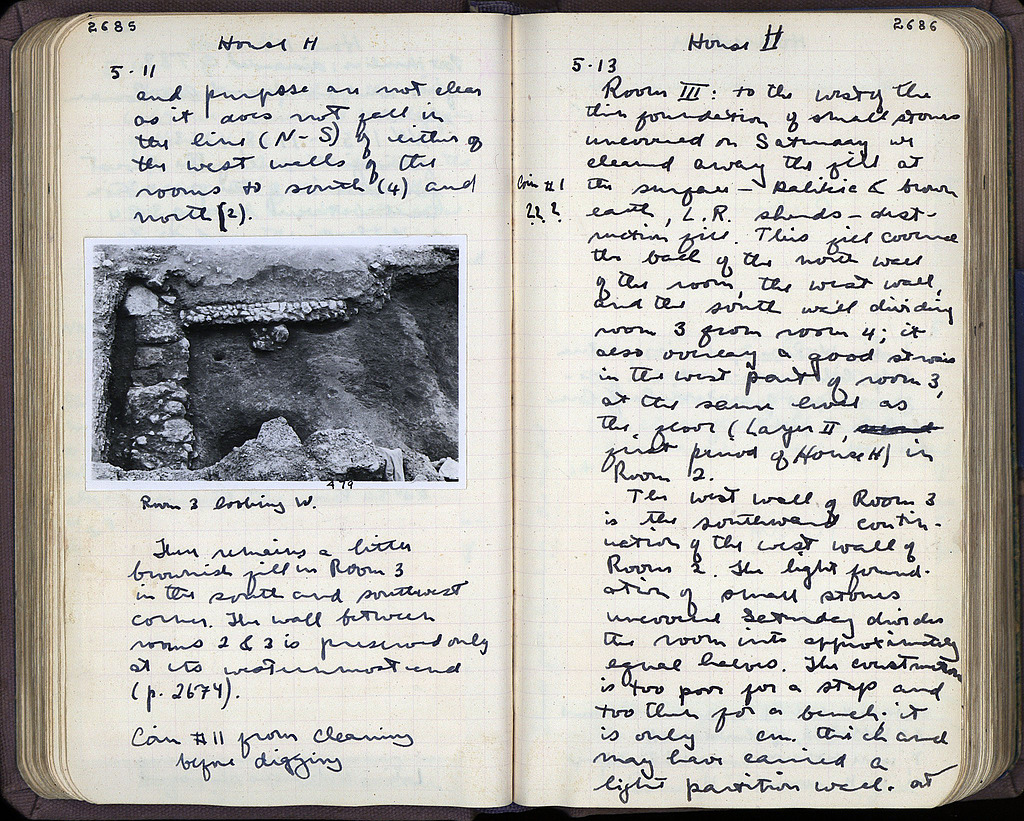 2685
House H
5-11
and purpose are not clear
as it does not fall in
the line (N-S) of either of
the west walls of the
rooms to south (4) and
north (2).
479
Room 3 looking W.
There remains a little
brownish fill in Room 3
in the south and southwest
corner. The wall between
rooms 2 & 3 is preserved only
at its westernmost end
(p. 2674).
Coin #11 from cleaning
before digging
2686
House H
5-13
Room III: to the west of the
thin foundation of small stones
uncovered on Saturday we
cleared away the fill at
Coin #1
the surface — kalikic & brown
??2
earth, L.R. sherds — dest-
ruction fill. This fill covered
the back of the north wall
of the room, the west wall,
and the south wall dividing
room 3 from room 4; it
also overlay a good strosis
in the west part of room 3,
at the same level as
the floor (Layer II,
first period of House H) in
Room 2.
The west wall of Room 3
is the southward contin-
uation of the west wall of
Room 2. The light found-
ation of small stones
uncovered Saturday divides
the room into approximately
equal halves. The construction
is too poor for a step and
too thin for a bench; it
is only cm. thick and
may have carried a
light partition wall. At